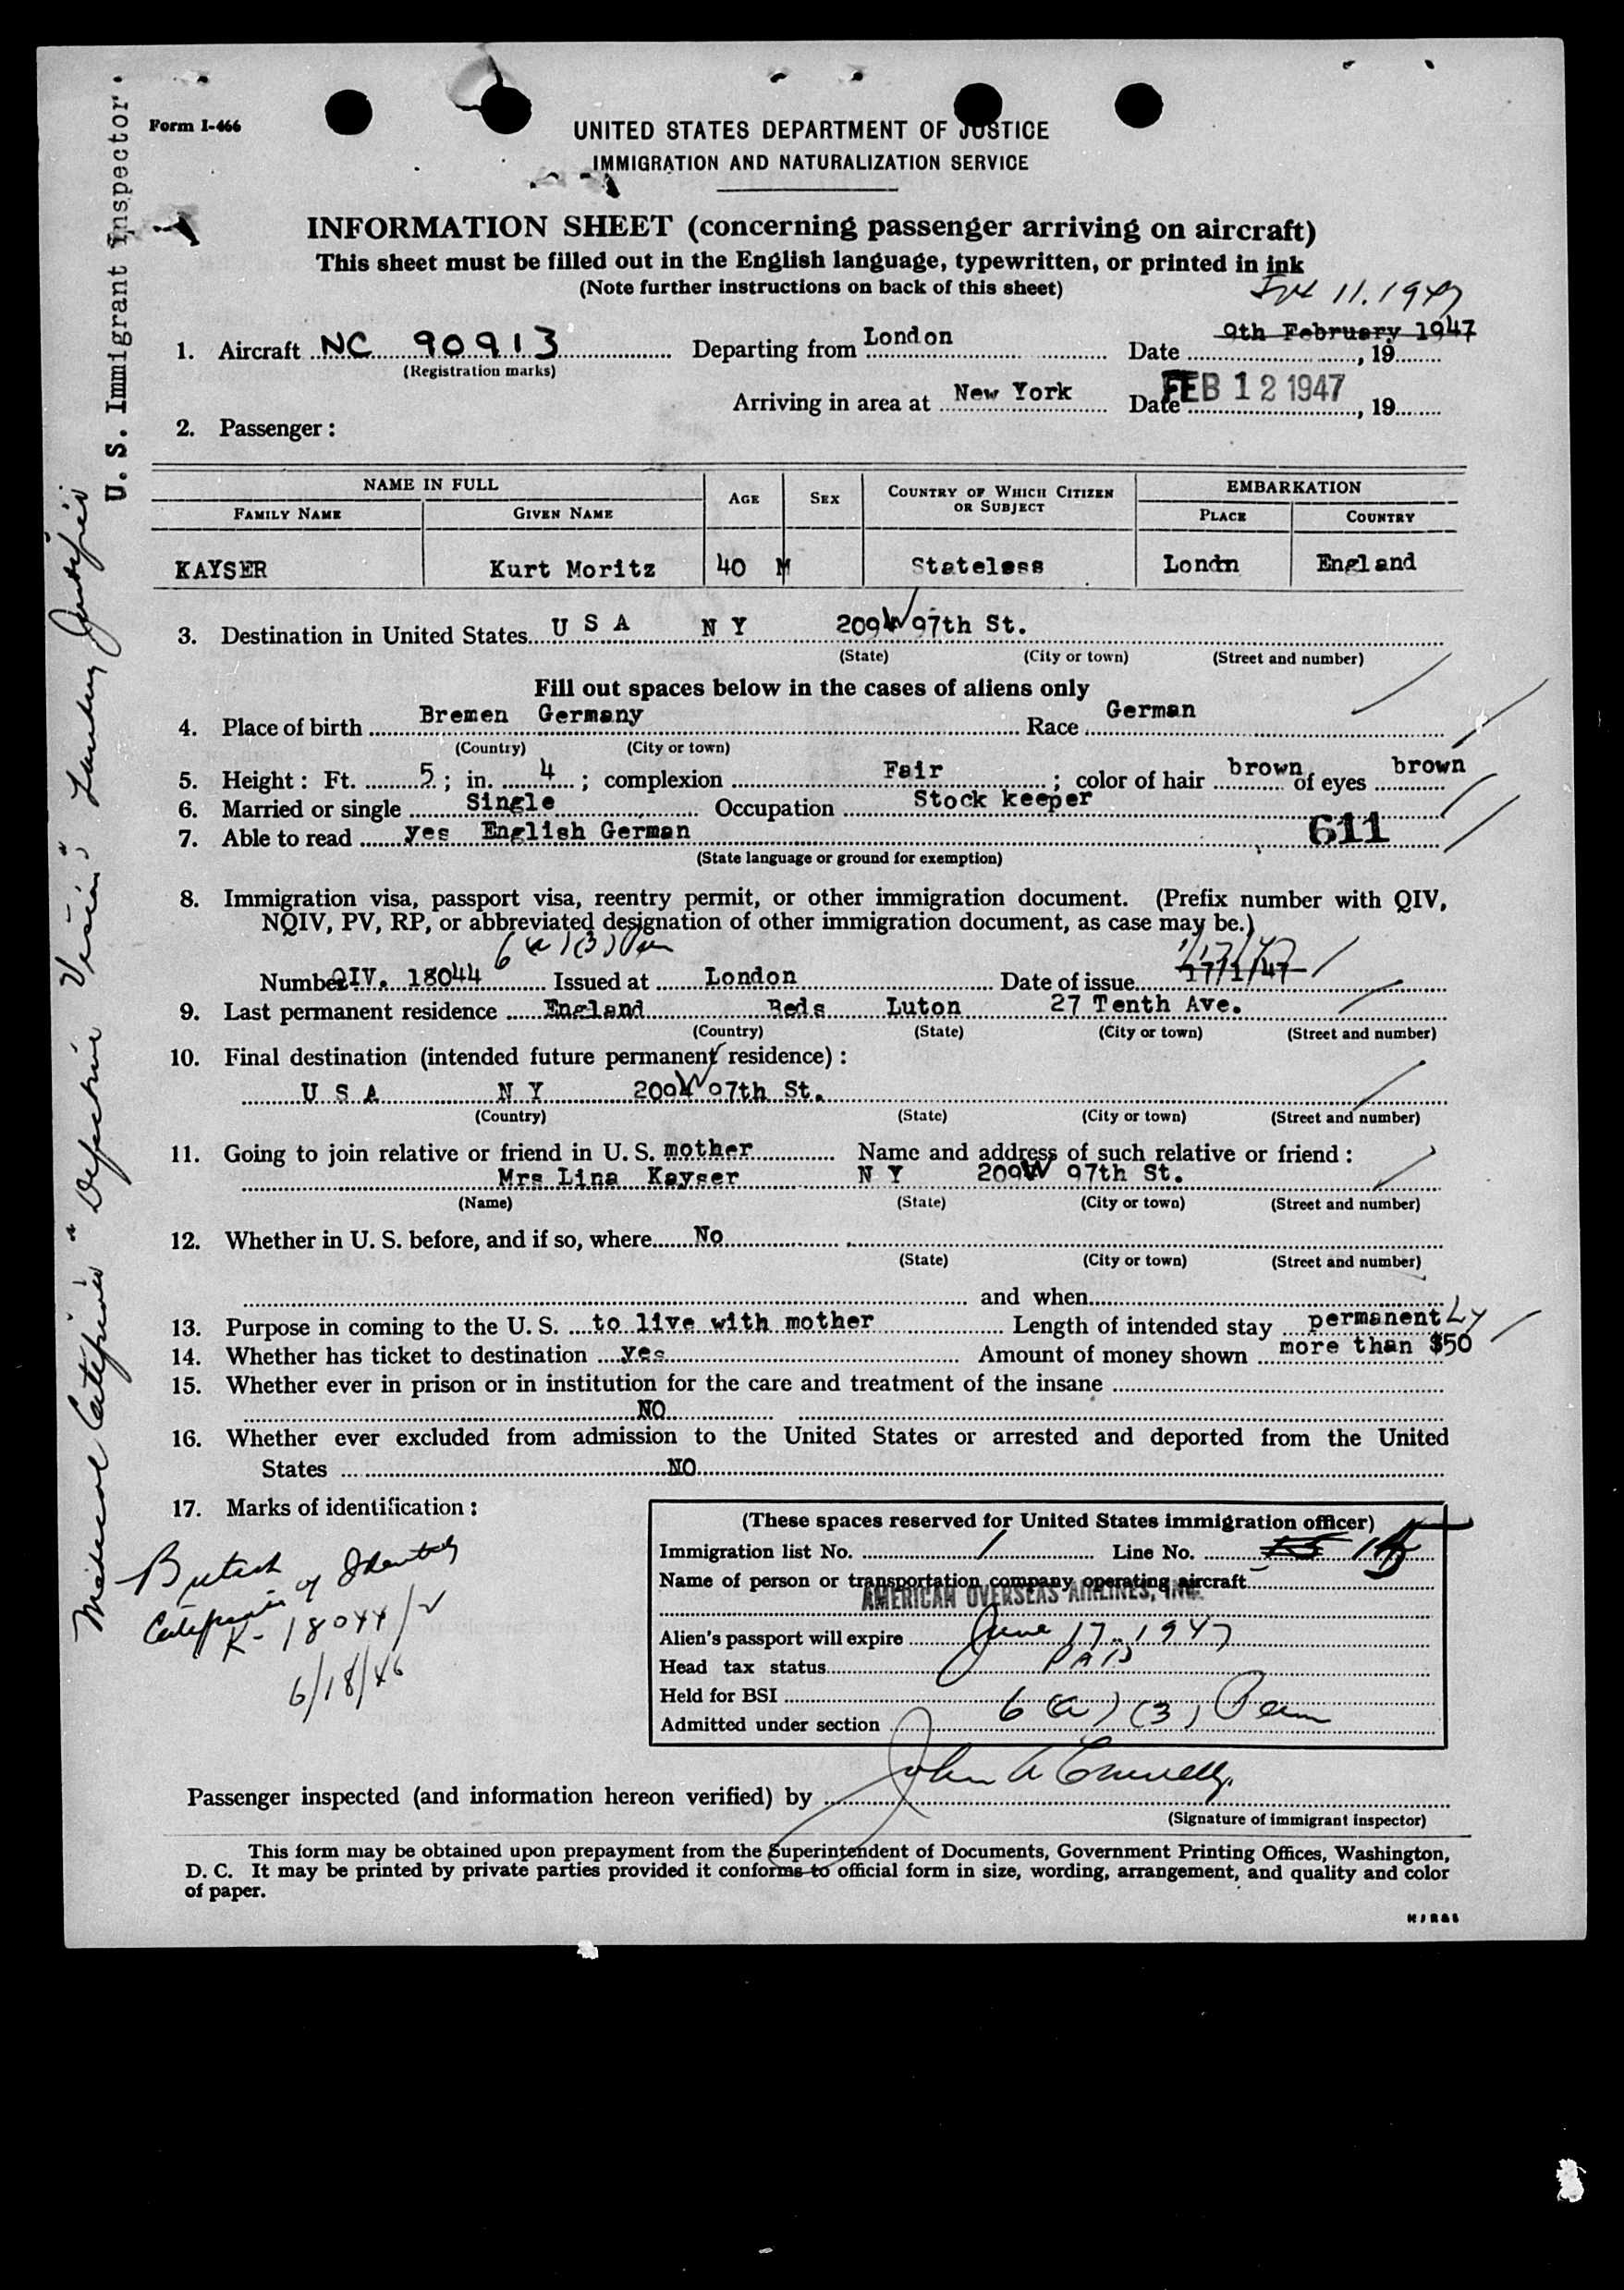 Form I-466
UNITED STATES DEPARTMENT OF JUSTICE
IMMIGRATION AND NATURALIZATION SERVICE
INFORMATION SHEET (concerning passenger arriving on aircraft)
This sheet must be filled out in the English language, typewritten, or printed in ink
(Note further instructions on back of this sheet)
11. 1947
1. Aircraft NC 90913 Departing from London Date 9th February 1947, 19
(Registration marks)
Arriving in area at New York Date FEB 12 1947, 19
2. Passenger:
NAME IN FULL AGE SEX COUNTRY OF WHICH CITIZEN OR SUBJECT EMBARKATION
FAMILY NAME GIVEN NAME PLACE COUNTRY
KAYSER Kurt Moritz 40 M Stateless Londn England
3. Destination in United States U S A N Y 209 W 97th St.
(State) (City or town) (Street and number)
Fill out spaces below in the cases of aliens only
4. Place of birth Bremen Germany Race German
(Country) (City or town)
5. Height: Ft. 5; in. 4; complexion Fair; color of hair brown of eyes brown
6. Married or single Single Occupation Stock keeper
7. Able to read yes English German 611
(State language or ground for exemption)
8. Immigration visa, passport visa, reentry permit, or other immigration document. (Prefix number with QIV,
NQIV, PV, RP, or abbreviated designation of other immigration document, as case may be.)
6 (a) (3) Per 1/17/47
Number QIV. 18044 Issued at London Date of issue 17/1/47
9. Last permanent residence England Beds Luton 27 Tenth Ave.
(Country) (State) (City or town) (Street and number)
10. Final destination (intended future permanent residence):
U S A N Y 209 W 97th St.
(Country) (State) (City or town) (Street and number)
11. Going to join relative or friend in U. S. mother Name and address of such relative or friend:
Mrs Lina Kayser N Y 209 W 97th St.
(Name) (State) (City or town) (Street and number)
12. Whether in U. S. before, and if so, where No
(State) (City or town) (Street and number)
and when
13. Purpose in coming to the U. S. to live with mother Length of intended stay permanently
14. Whether has ticket to destination yes Amount of money shown more than $50
15. Whether ever in prison or in institution for the care and treatment of the insane
NO
16. Whether ever excluded from admission to the United States or arrested and deported from the United
States NO
17. Marks of identification:
British
Certificate of Identity
K-18044/
6/18/46
(These spaces reserved for United States immigration officer)
Immigration list No. 1 Line No. 15
Name of person or transportation company operating aircraft
AMERICAN OVERSEAS AIRLINES, INC.
Alien's passport will expire June 17, 1947
Head tax status PAID
Held for BSI
Admitted under section 6 (a) (3) Per
John A Connelly
Passenger inspected (and information hereon verified) by
(Signature of immigrant inspector)
This form may be obtained upon prepayment from the Superintendent of Documents, Government Printing Offices, Washington,
D. C. It may be printed by private parties provided it conforms to official form in size, wording, arrangement, and quality and color
of paper.
U. S. Immigrant Inspector.
Medical Certificate "Defective Vision" Landing Justified